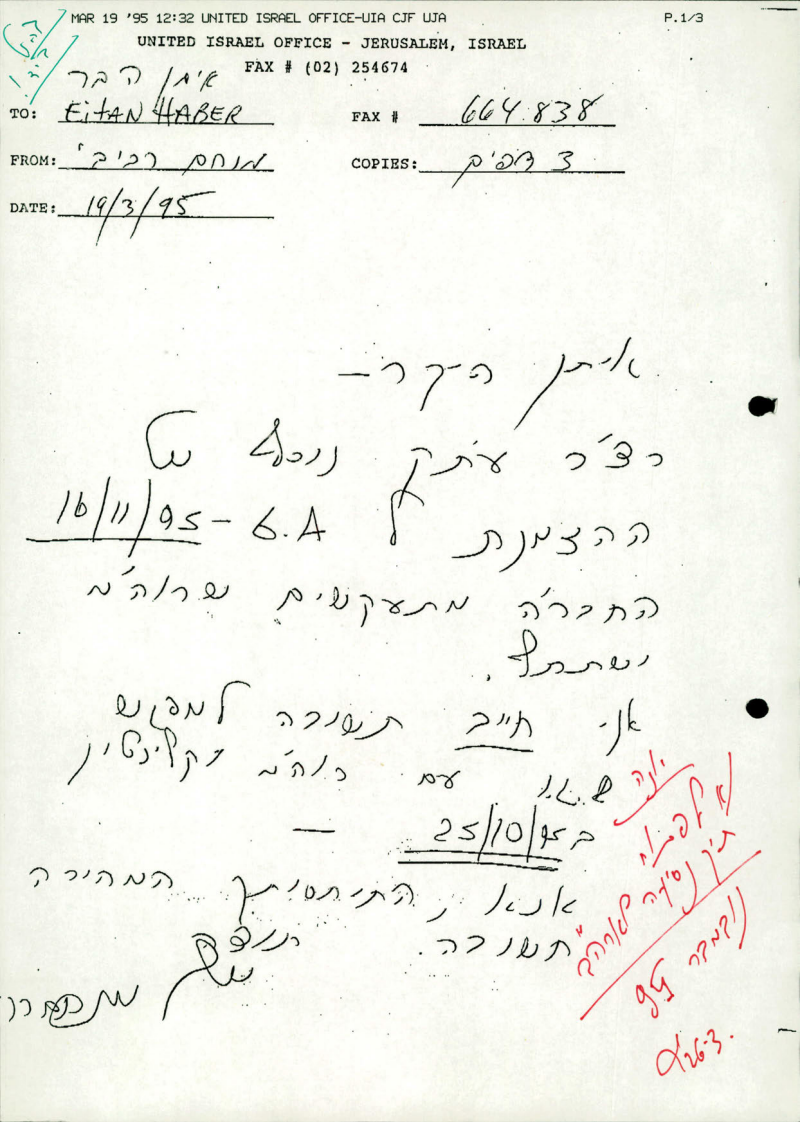 MAR 19 '95 12:32 UNITED ISRAEL OFFICE-UIA CJF UJA P.1/3
UNITED ISRAEL OFFICE - JERUSALEM, ISRAEL
FAX # (02) 254674
איתן הבר
TO: EitAN HABER FAX # 664.838
FROM: מנחם רביב COPIES: 3 דפים
DATE: 19/3/95
איתן היקר -
רצ"ב עותק נוסף של
ההזמנה ל G.A - 16/11/95
החבר'ה מתעקשים שרוה"מ
ישתתף.
אני חייב תשובה למפגש
עם רוה"מ וקלינטון
ב 25/10/95 -
אנא, התיחסותך המהירה
תשובה.
שלך
נא לפתוח
תיק נסיעה לארה"ב
נובמבר